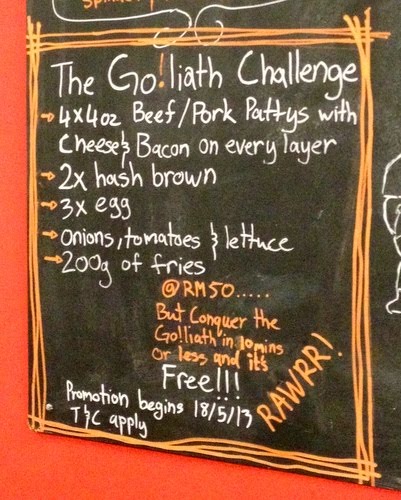 The Go!liath Challenge
→ 4x4oz Beef/Pork Pattys with
Cheese & Bacon on every layer
→ 2x hash brown
→ 3x egg
→ onions, tomatoes & lettuce
→ 200g of fries
@RM50.....
But Conquer the
Go!liath in 10mins
or less and it's
Free!!!
RAWRR!
Promotion begins 18/5/13
T&C apply